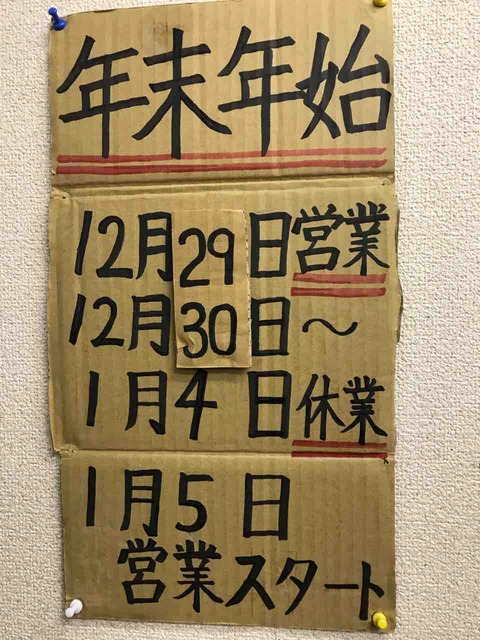 年末年始
12月29日営業
12月30日～
1月4日休業
1月5日
営業スタート